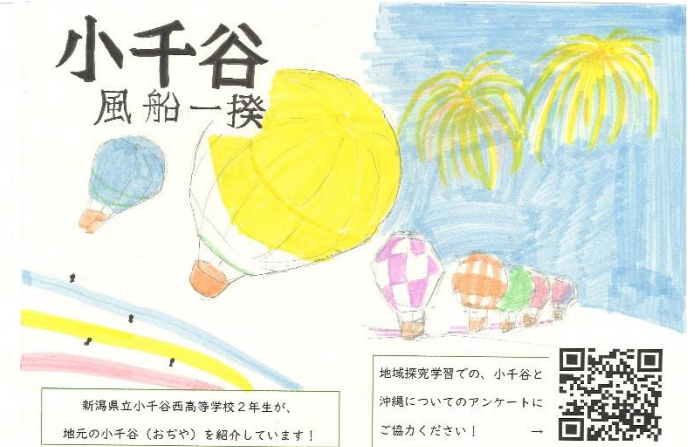 小千谷
風船一揆
新潟県立小千谷西高等学校２年生が、
地元の小千谷（おぢや）を紹介しています！
地域探究学習での、小千谷と
沖縄についてのアンケートに
ご協力ください！　→